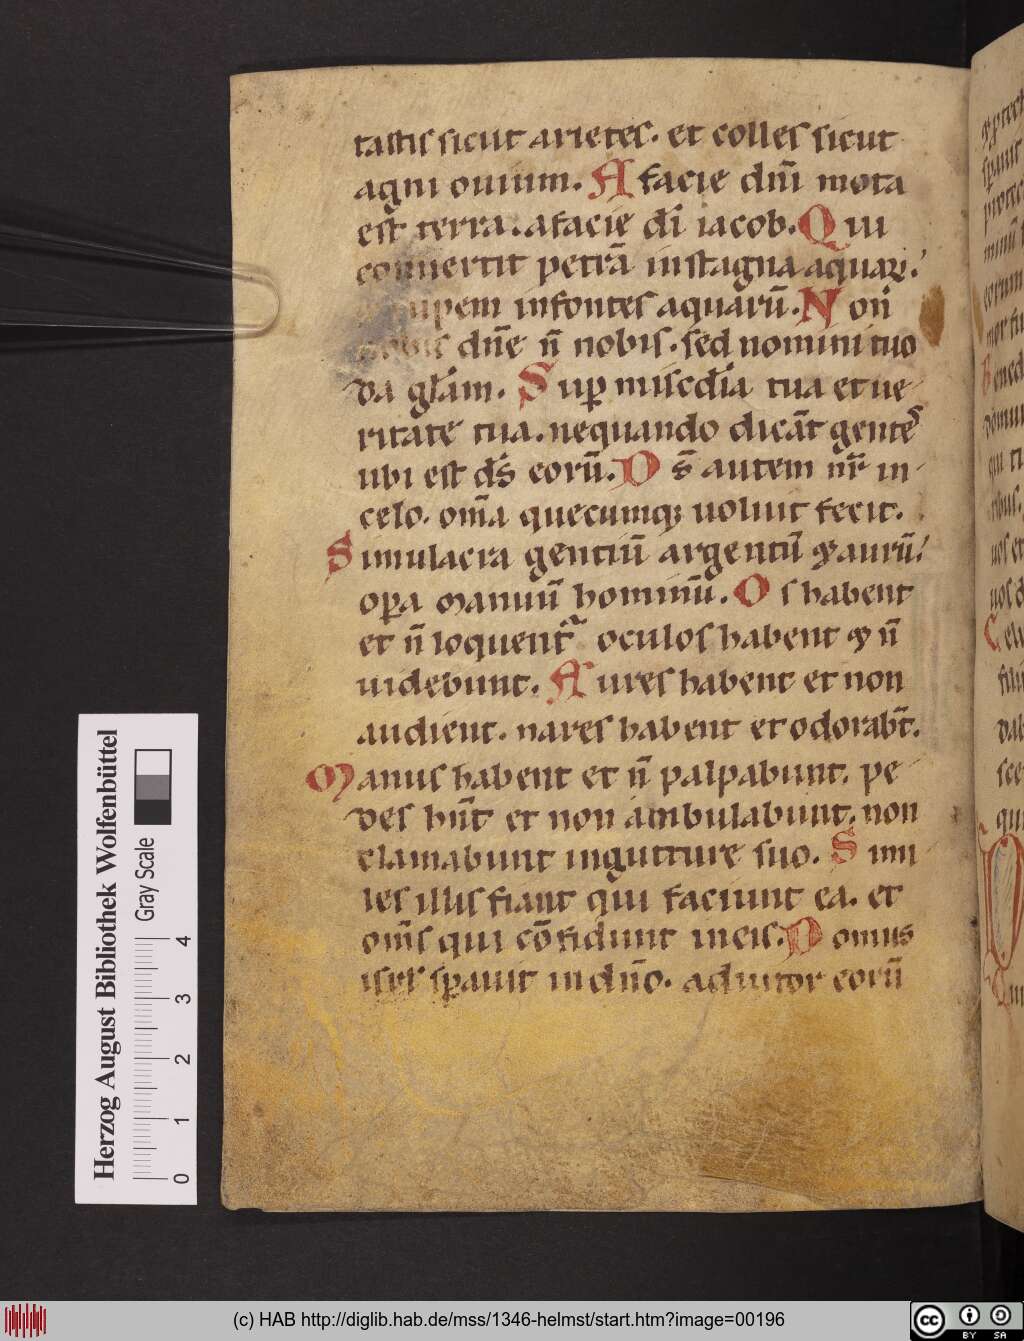 tastis sicut arietes. et colles sicut
agni ouium. A facie dn̄i mota
est terra. a facie dī iacob. Qui
conuertit petrā in stagna aquaꝝ.
rupem in fontes aquarū. Non
nobis dn̄e n̄ nobis. sed nomini tuo
da glām. Sup̄ misc̄dia tua et ue
ritate tua. nequando dicāt gentes
ubi est d̄s eorū. D s̄ autem nr̄ in
celo. om̄a quecumqꝫ uoluit fecit.
Simulacra gentiū argentū ⁊ aurū.
opa manuū hominū. Os habent
et n̄ loquent᷑ oculos habent ⁊ n̄
uidebunt. Aures habent et non
audient. nares habent et odorabt̄.
Manus habent et n̄ palpabunt. pe
des hn̄t et non ambulabunt. non
clamabunt in gutture suo. Simi
les illis fiant qui faciunt ea. et
om̄s qui cōfidunt in eis. Domus
isrl sꝑauit in dn̄o. adiutor eorū
Herzog August Bibliothek Wolfenbüttel
Gray Scale
0 1 2 3 4
(c) HAB http://diglib.hab.de/mss/1346-helmst/start.htm?image=00196
cc BY SA